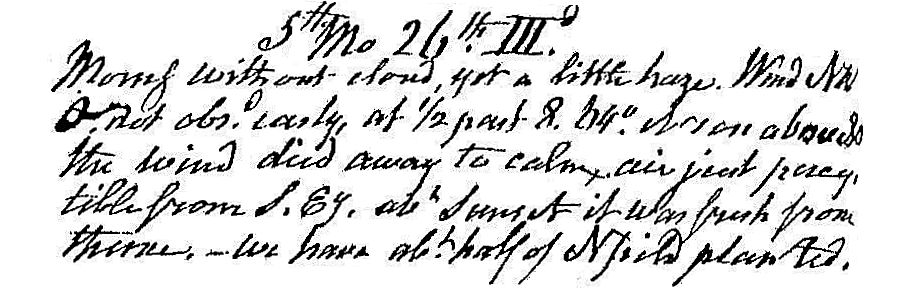 5th Mo 26th. III.d
Morng without cloud, yet a little haze. Wind NW
not obs.d early, at 1/2 past 8. 54°. at noon above 80
the wind died away to calm, air just percep,
tible from S. Ey. abt Sunset it was fresh from
thence. – We have abt. half of N field planted.